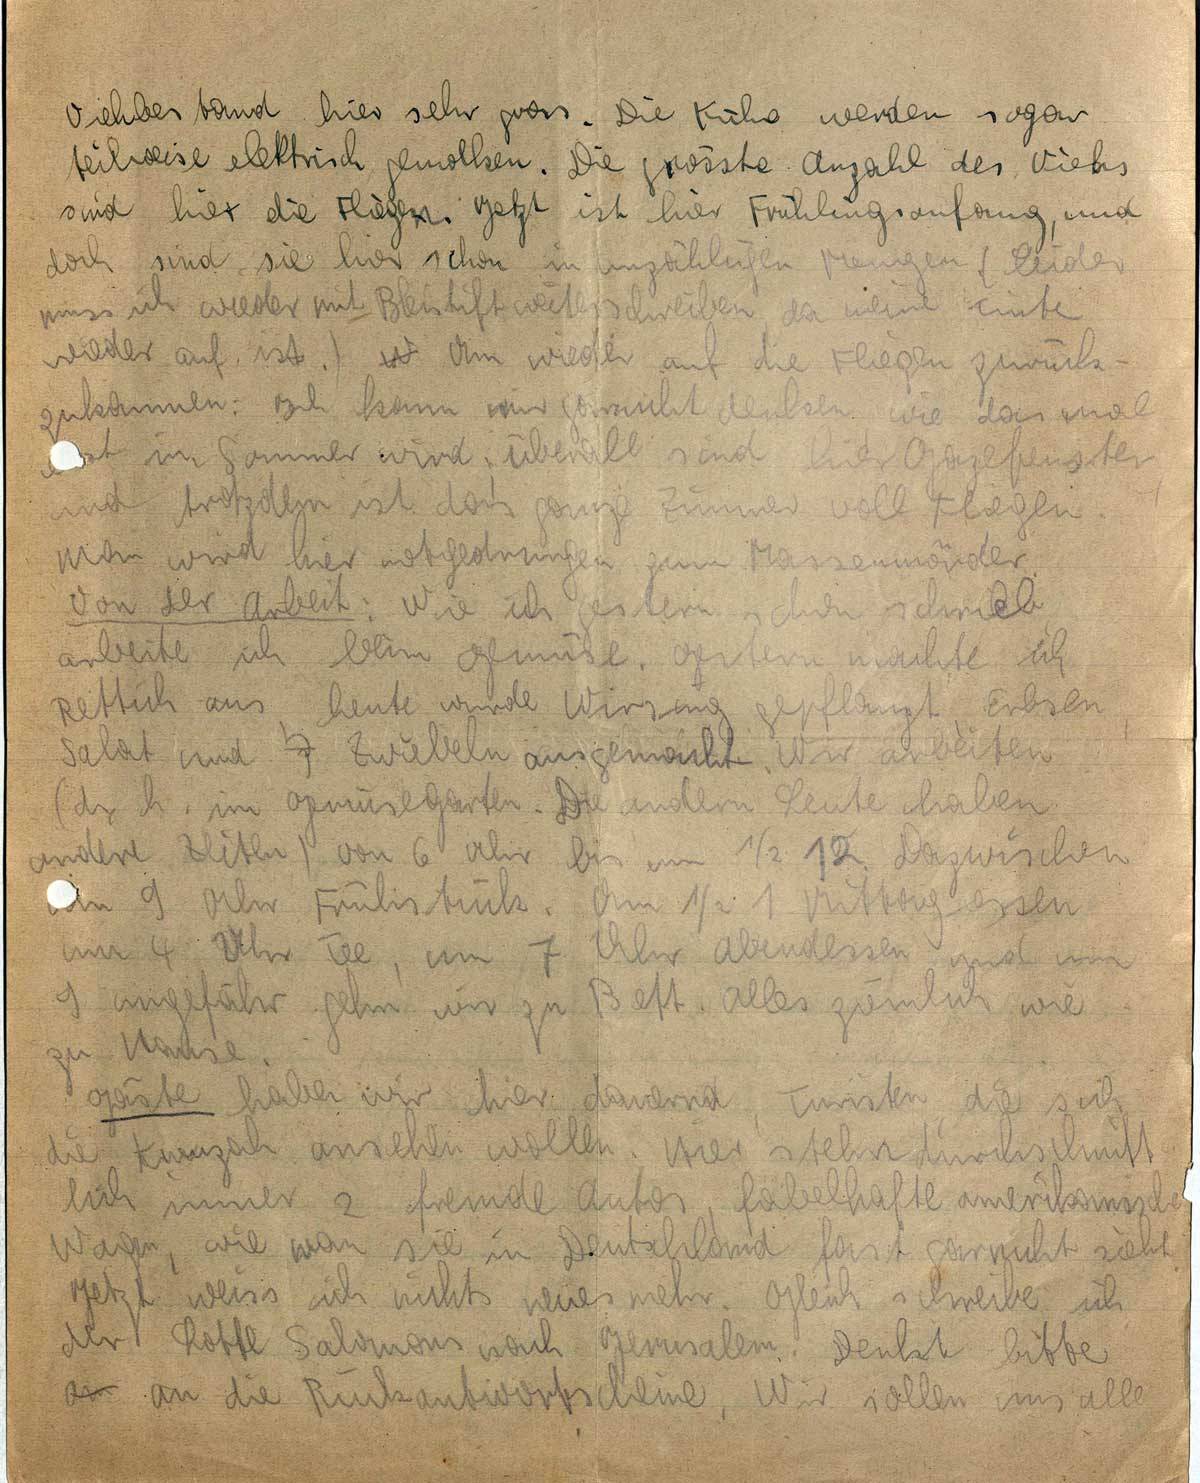 Viehbestand hier sehr gross. Die Kühe werden sogar
teilweise elektrisch gemolken. Die grösste Anzahl des Viehs
sind hier die Fliegen. Jetzt ist hier Frühlingsanfang, und
doch sind sie hier schon in unzähligen Mengen (Leider
muss ich wieder mit Bleistift weiterschreiben, da meine Tinte
wieder auf ist.) Um wieder auf die Fliegen zurück-
zukommen: Ich kann mir garnicht denken wie das mal
erst im Sommer wird. überall sind hier Gazefenster
und trotzdem ist das ganze Zimmer voll Fliegen.
Man wird hier notgedrungen zum Massenmörder.
Von der Arbeit: Wie ich gestern schon schrieb,
arbeite ich beim Gemüse. Gestern machte ich
Rettich aus, heute wurde Wirsing gepflanzt, Erbsen,
Salat und Zwiebeln ausgemacht. Wir arbeiten
(d. h. im Gemüsegarten. Die andern Leute haben
andere Zeiten) von 6 Uhr bis um 1/2 12. Dazwischen
um 9 Uhr Frühstück. Um 1/2 1 Mittagessen
um 4 Uhr Tee, um 7 Uhr Abendessen und um
9 ungefähr gehn wir zu Bett. Alles ziemlich wie
zu Hause.
Gäste haben wir hier dauernd, Turisten, die sich
die Kwuzah ansehen wollen. Hier stehn durchschnitt
lich immer 2 fremde Autos, fabelhafte amerikanische
Wagen, wie man sie in Deutschland fast garnicht sieht
Jetzt weiss ich nichts neues mehr. Gleich schreibe ich
der Lotte Salomons nach Jerusalem. Denkt bitte
an die Rückantwortscheine, Wir sollen uns alle